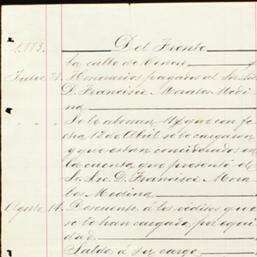 1883. Del Frente
la calle de
Julio 31. Honorarios pagados al Sr. Lic.
D. Francisco Morales Medi-
na
Se le abonan 14 que con fe-
cha 12 de Abril se le cargaron
y que estan concidirados en
la cuenta que presentó el
Sr. Lic. D. Francisco Mora-
les Medina
Agosto 14. Descuento á los réditos que
se le han cargado por equi-
dad
Saldo á su cargo